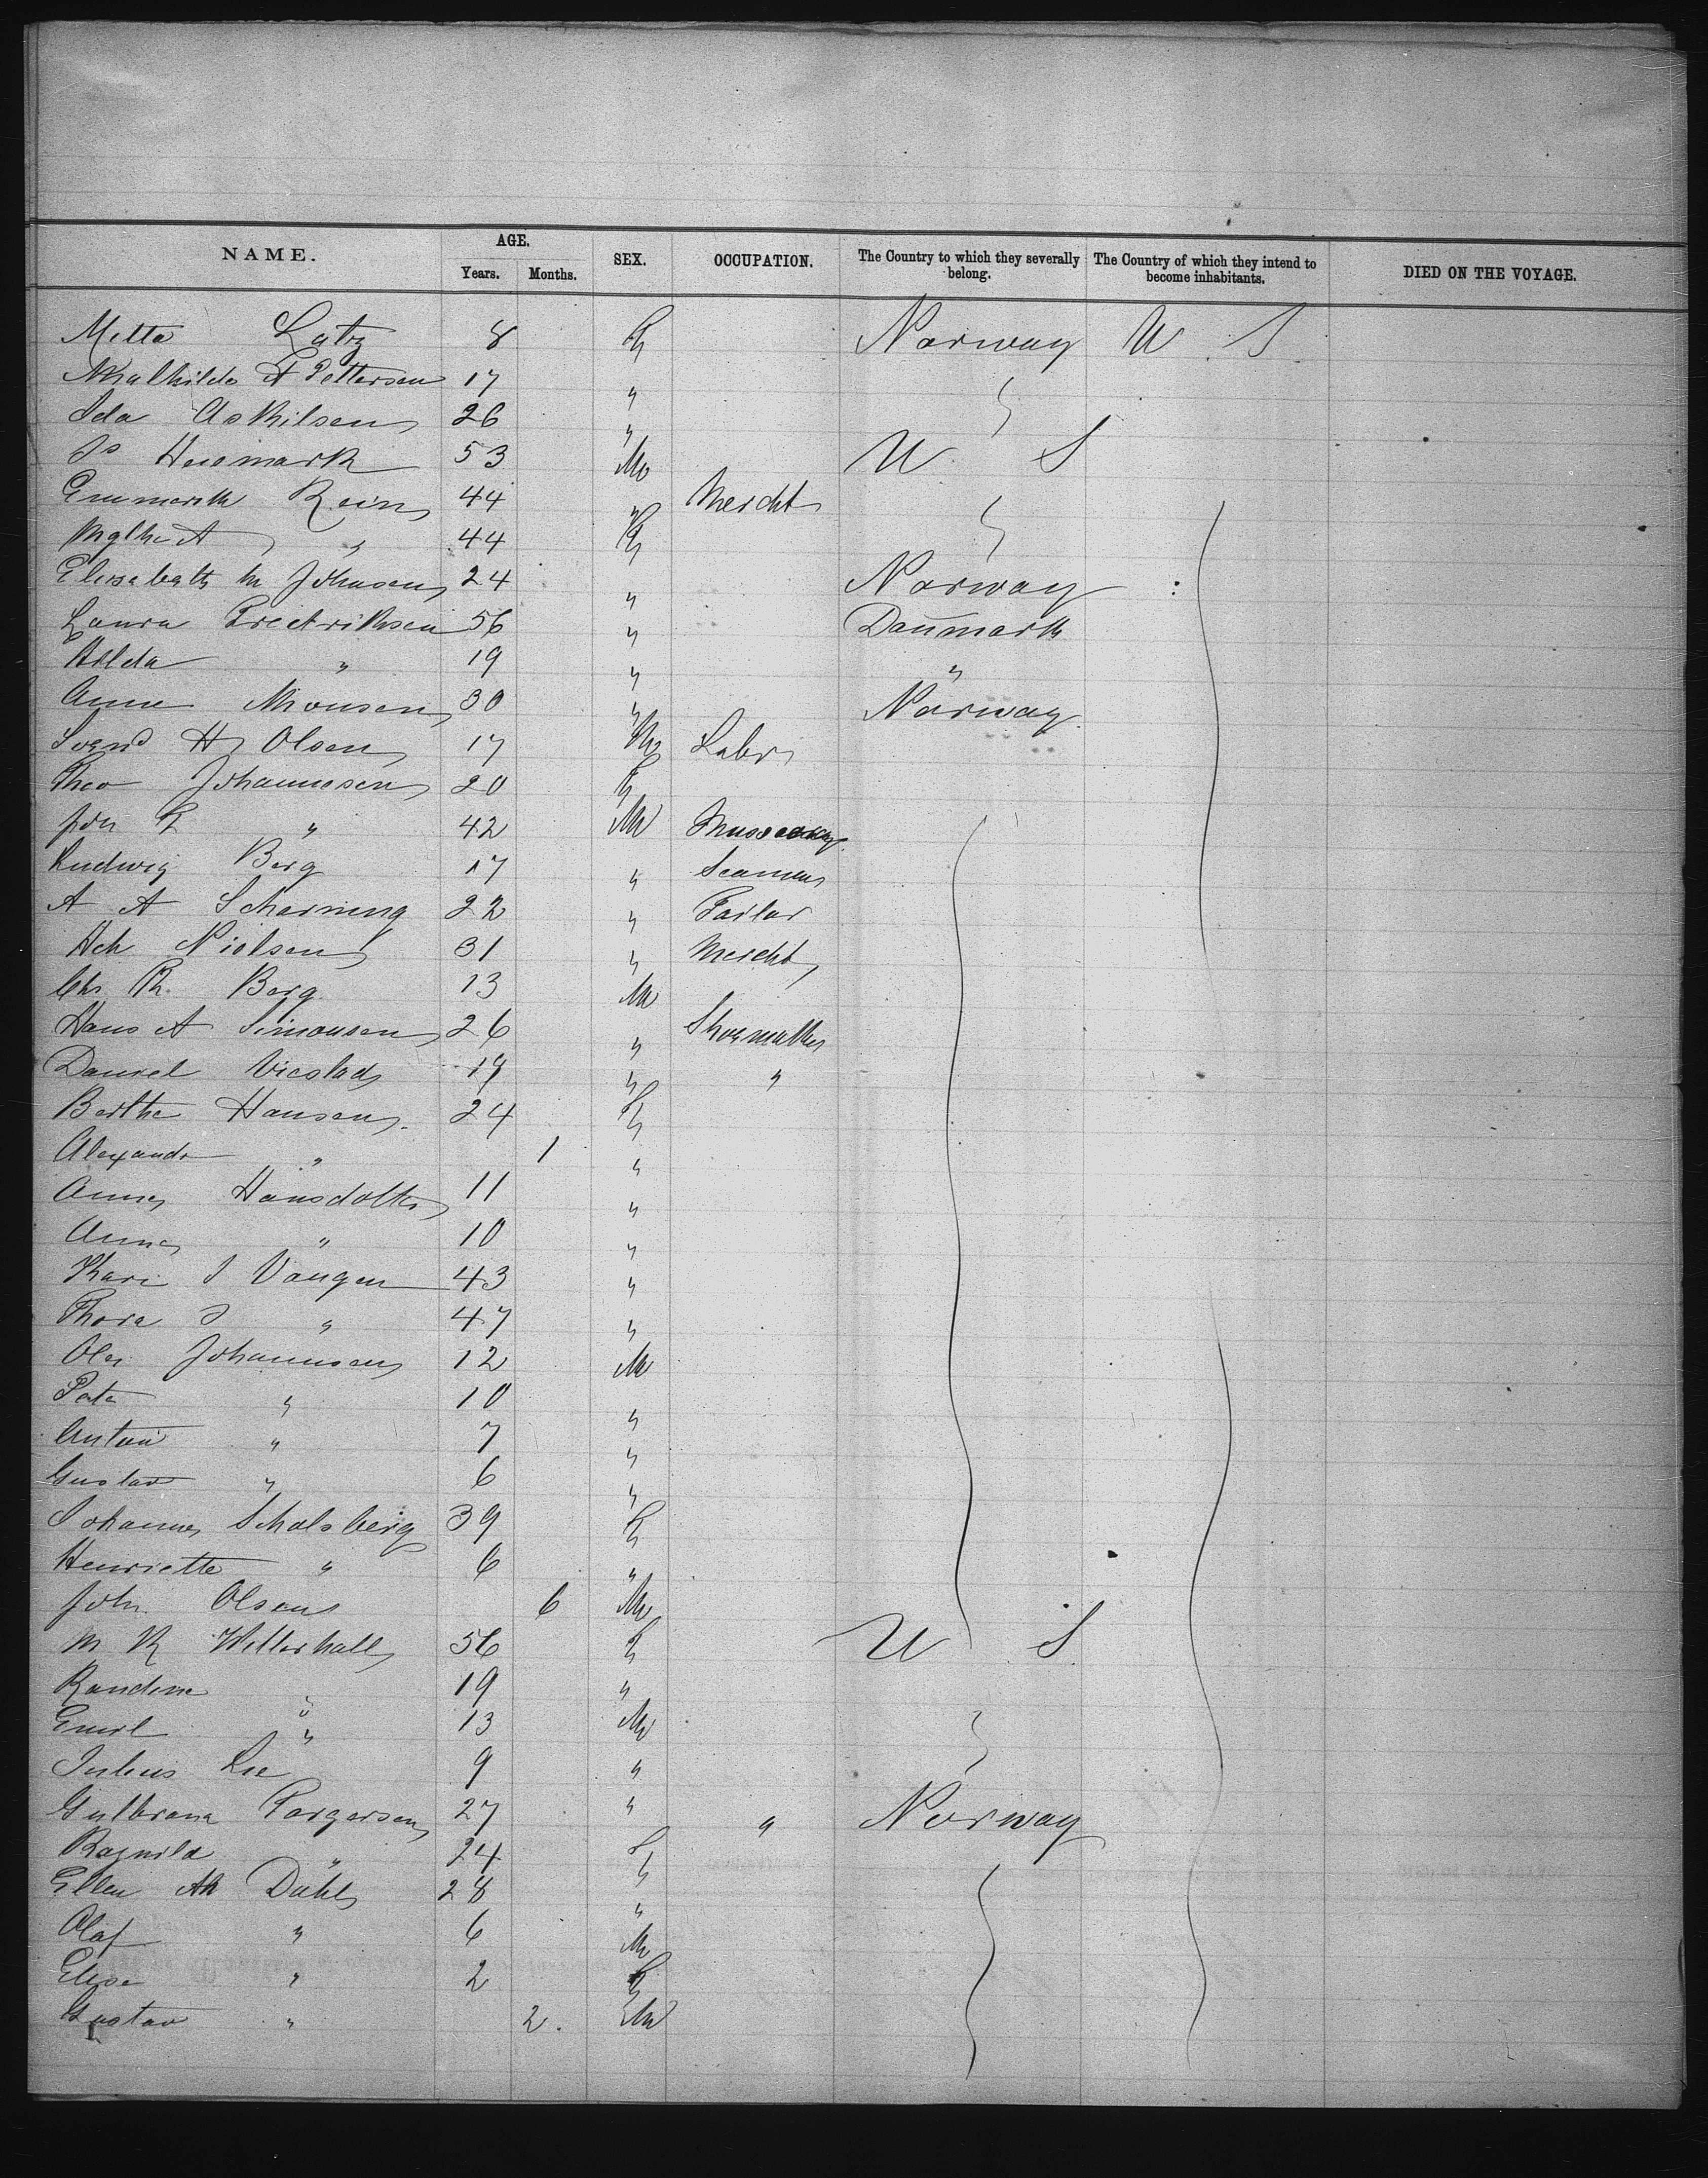 NAME. AGE. SEX. OCCUPATION. The Country to which they severally belong. The Country of which they intend to become inhabitants. DIED ON THE VOYAGE.
Years. Months.
Mette 8 F Norway U S
Mathilde A Pettersen 17 "
Ida Askilsen 26 "
53 M U S
Rein 44 " Mercht
" 44 F
Elisabeth M Johnsen 24 " Norway
Laura Fredriksen 56 " Danmark
Hilda " 19 " "
Anne Monsen 30 " Norway
Svend H Olsen 17 M Labr
Theo Johannesen 20 F
" 42 M
Ludwig Berg 17 " Seaman
A A Scharning 22 " Tailor
Nielsen 31 " Mercht
Chr. R. Berg 13 M
Hans A Simonsen 26 " Shoemaker
Daniel 19 " "
Berthe Hansen 24 F
Alexandr " 1 "
Anne Hansdotter 11 "
Anne " 10 "
Kari I Vangen 43 "
Thora I " 47 "
Ole Johannesen 12 M
Pete " 10 "
Anton " 7 "
Gustav " 6 "
Johanne 39 F
Henriette " 6 "
John Olsen 6 M
M K 56 F U S
Randine " 19 "
Emil " 13 M
Julius Lie 9 "
Torgersen 27 " " Norway
Ragnild " 24 F
Ellen Dahl 28 "
Olaf " 6 M
Elise " 2 F
Gustav " 2. M